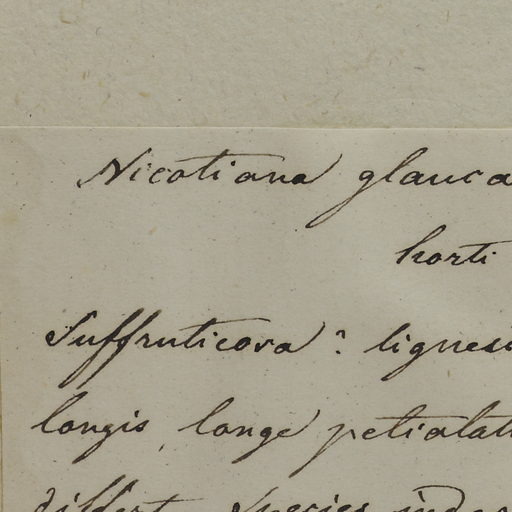 Nicotiana glauca
horti
Suffruticosa? lignesc
longis, longe petiolat
differt. Species